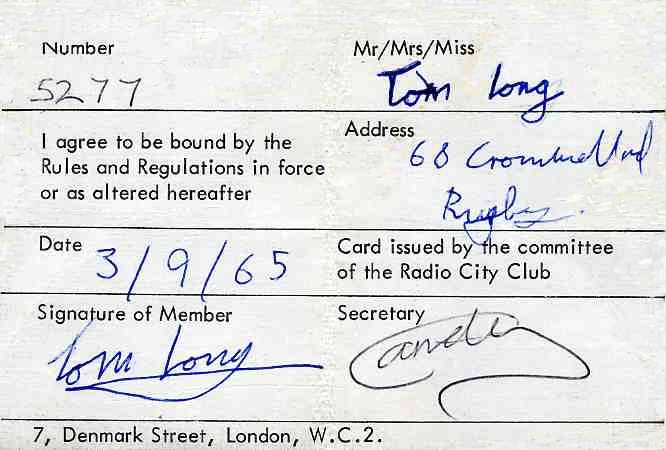 Number
5277
Mr/Mrs/Miss
Tom Long
I agree to be bound by the
Rules and Regulations in force
or as altered hereafter
Address
68 Cromwell Rd
Rugby.
Date 3/9/65
Card issued by the committee
of the Radio City Club
Signature of Member
Tom Long
Secretary
7, Denmark Street, London, W.C.2.